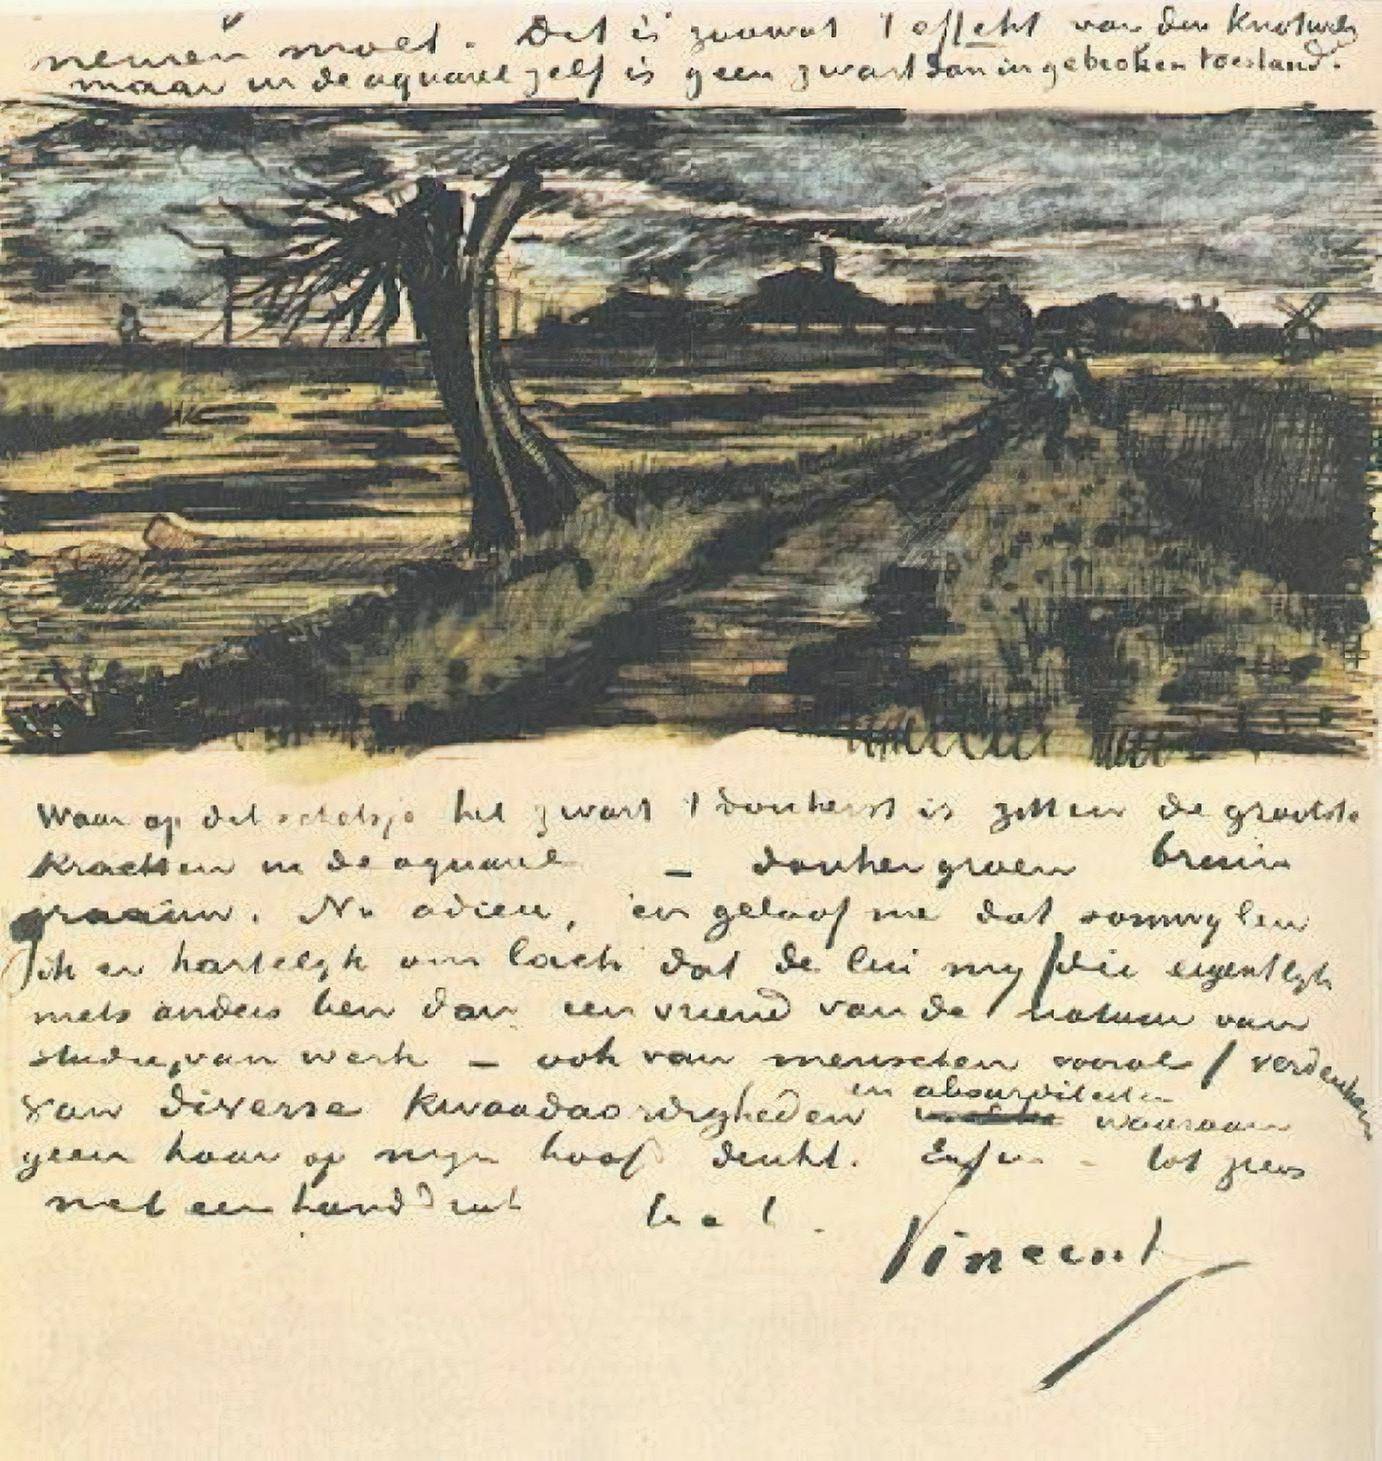 nemen moet. Dit is zoowat 't effekt van den Knotwilg
maar in de aquarel zelf is geen zwart dan in gebroken toestand.
Waar op dit schetsje het zwart 't donkerst is zitten de grootste
Krachten in de aquarel – donker groen bruin
graauw. Nu adieu, en geloof me dat somwylen
ik er hartelyk om lach dat de lui my /die eigentlyk
niets anders ben dan een vriend van de natuur van
studie, van werk – ook van menschen vooral/ verdenken
van diverse Kwaadaardigheden en absurditeiten waaraan
geen haar op myn hoofd denkt. Enfin – tot ziens
met een handdruk t. à t.
Vincent